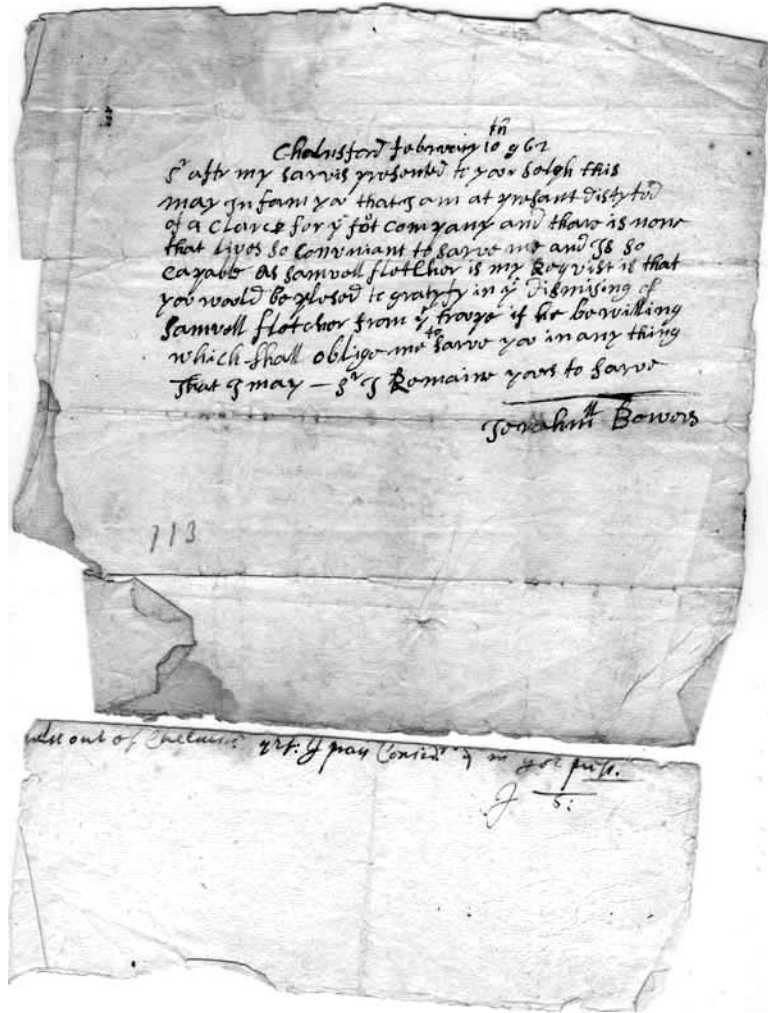 Chalmsford February 10th 9 6 2
Sr aftr my sarvis presented to yoor Selph this
may Jnfam yoo that J am at presant distytod
of a Clarck for ye fot Company and thare is none
that lives so Conveniant to sarve me and Js so
Capable As Samvell fletcher is my Reqvist is that
yoo woold be plesed to gratyfy in ye Dismising of
Samvell fletcher from ye troope if he be willing
which shall oblige me to sarve yoo in any thing
that J may — Sr J Remaine yoors to sarve
Jerahmll Bowers
113
out of pay in
5: